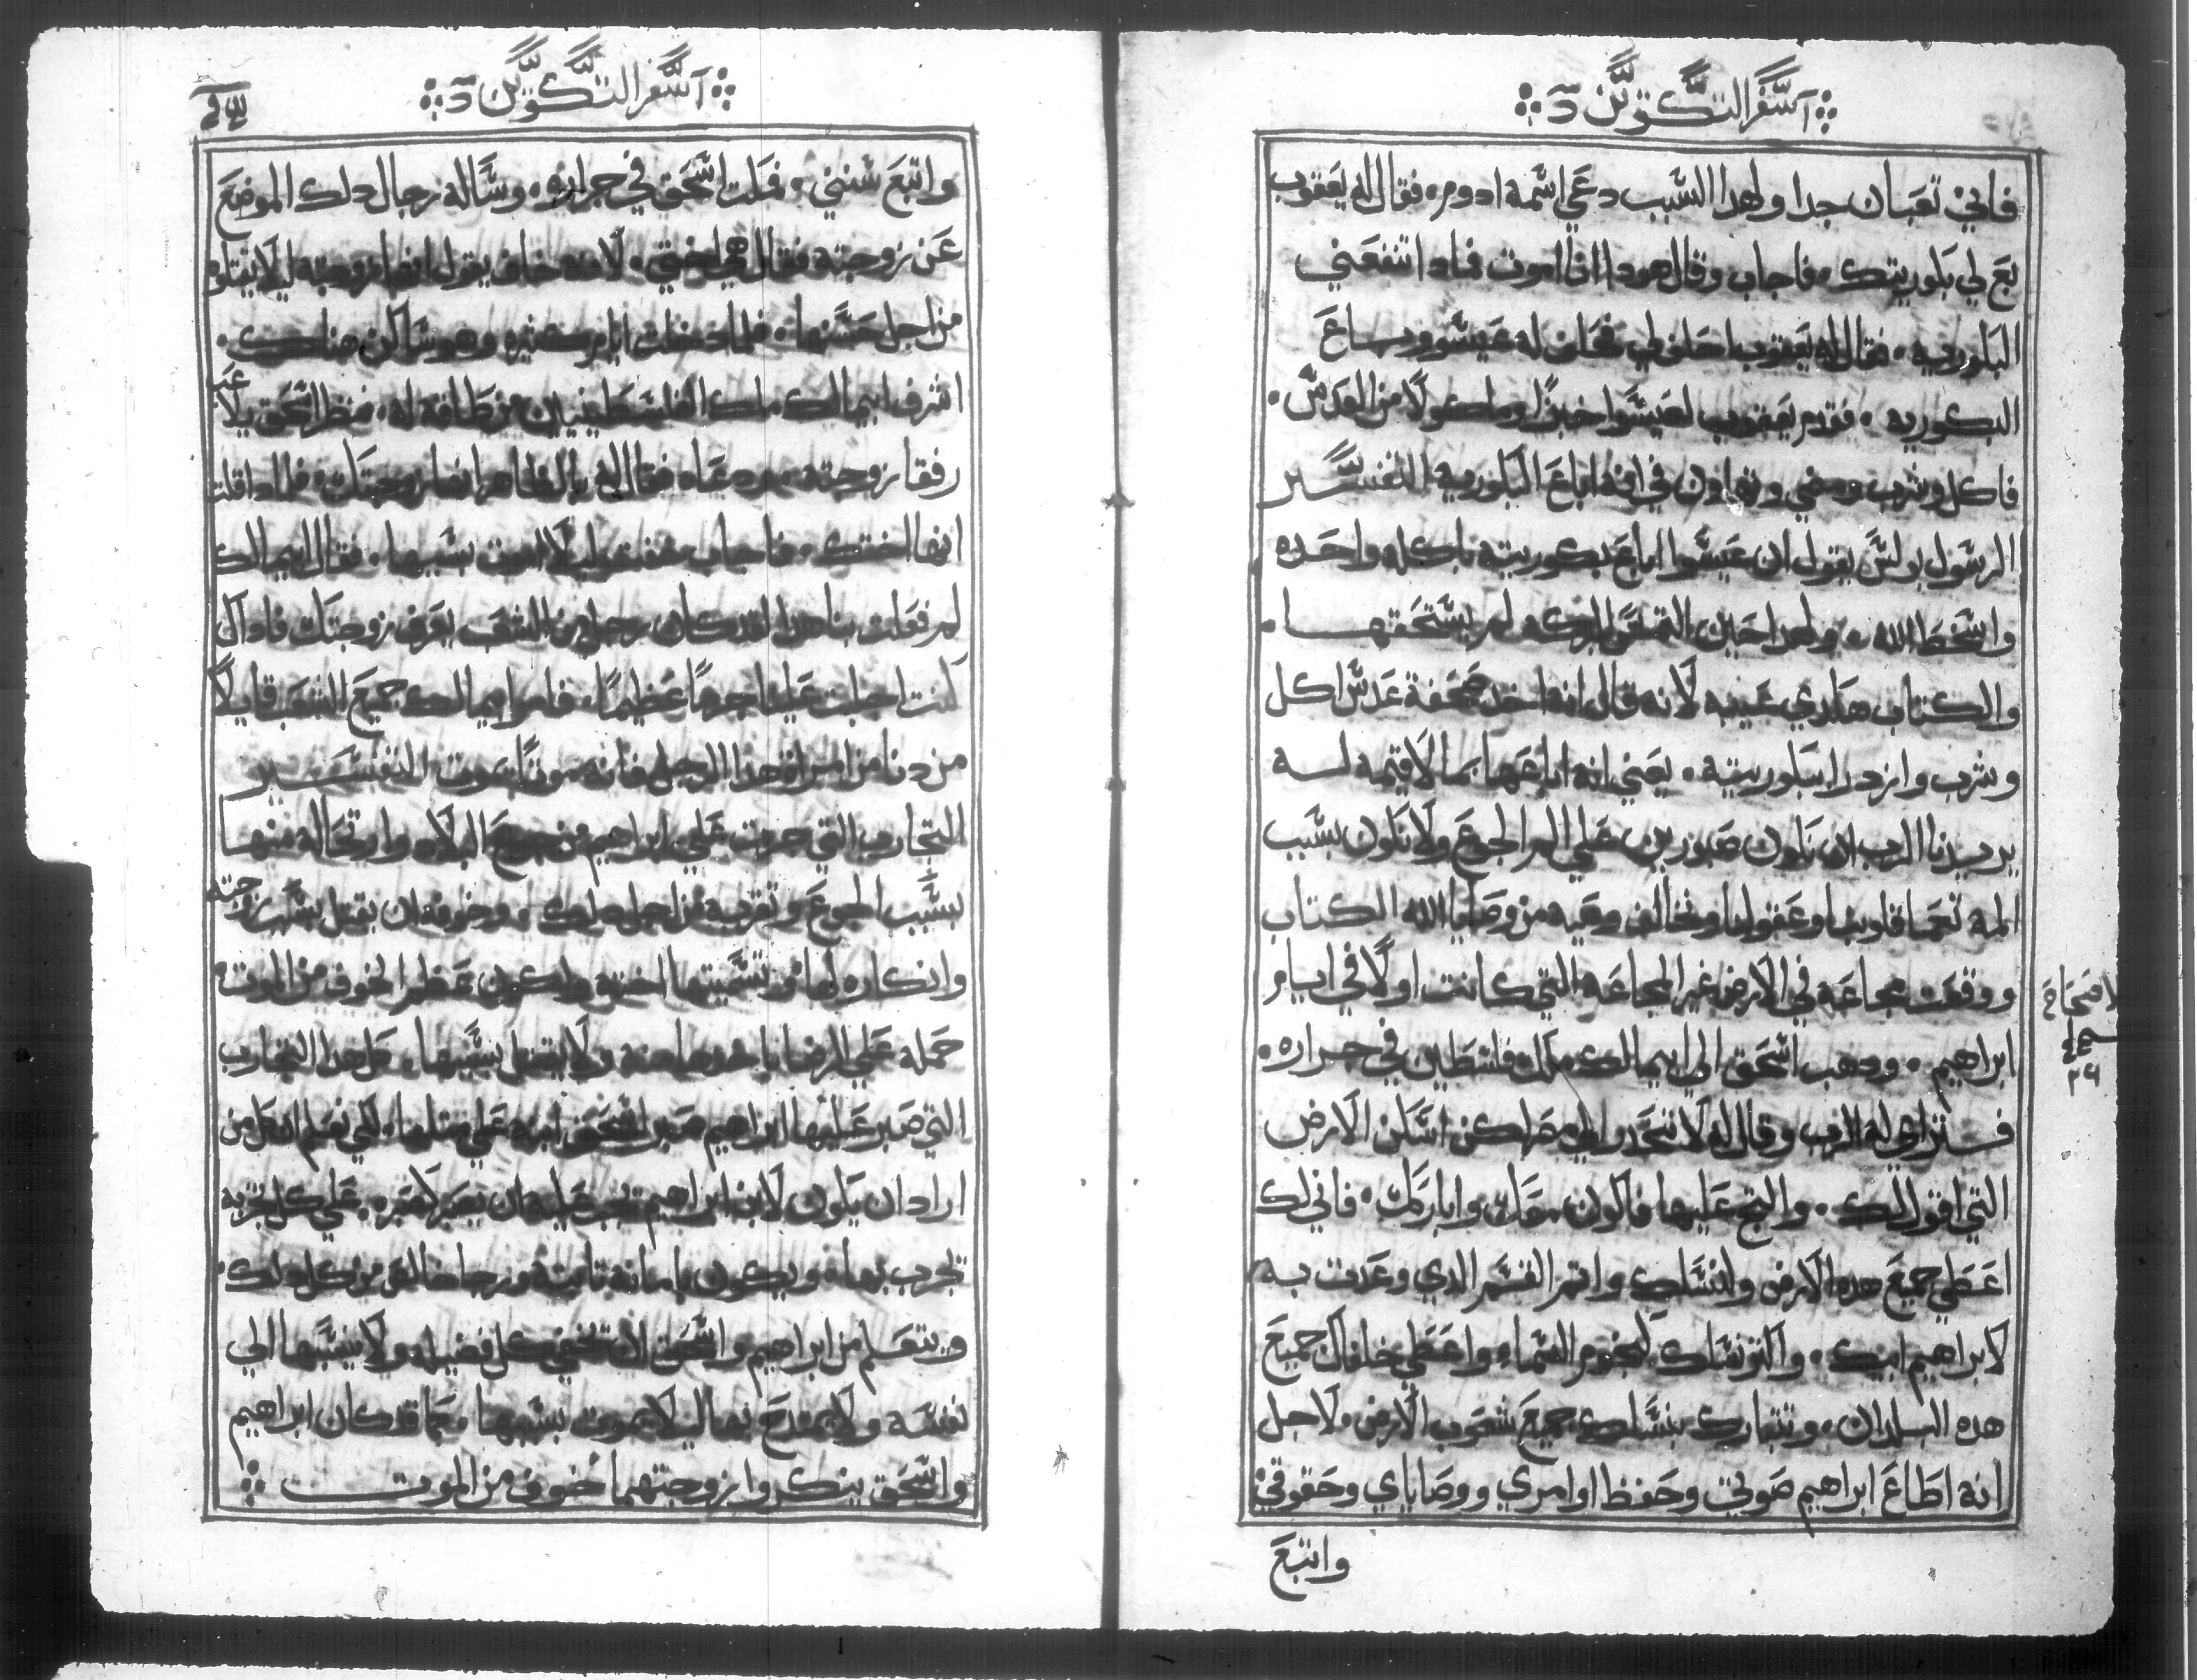 سفر التكوين
فاني تعبان جدا ولهدا السبب دعي اسمه ادوم فقال له يعقوب
بع لي بكوريتك فاجاب وقال هودا انا اموت فمادا تنفعني
البكوريه فقال له يعقوب احلف لي فحلف له عيسو وباع
البكوريه فقدم يعقوب لعيسوا خبزًا وماكولًا من العدس
فاكل وشرب ومضي وتهاون في انه اباع البكوريه التفسير
الرسول بولس يقول ان عيسوا اباع بكوريته باكله واحده
واسخط الله ولهدا حين التمس البركه لم يستحقها
والكتاب هاهنا عيبه لانه قال انه اخد صحفة عدس اكل
وشرب وازدرا ببكوريته يعني انه اباعها بما لا قيمه له
يريدنا الرب ان نكون صبورين علي الم الجوع ولا نكون بسبب
المه تعما قلوبنا وعقولنا ونخالف وصيه من وصايا الله الكتاب
ووقعت مجاعه في الارض غير المجاعه التي كانت اولًا في ايام
ابراهيم ودهب اسحق الي ابيمالك ملك فلسطين في جراره
فترااي له الرب وقال له لا تنحدر الي مصر لكن اسكن الارض
التي اقول لك والتج عليها فاكون معك واباركك فاني لك
اعطي جميع هده الارض ولنسلك واتم القسم الدي وعدت به
لابراهيم ابيك واكتر نسلك كنجوم السما واعطي خلفاك جميع
هده البلدان وتتبارك بنسلك جميع شعوب الارض لاجل
انه اطاع ابراهيم صوتي وحفظ اوامري ووصاياي وحقوقي
واتبع
الاصحاح
٢٦
سفر التكوين
واتبع سنني فمكت اسحق في جراره وساله رجال دلك الموضع
عن زوجته فقال هي اختي لانه خاف يقول انها زوجته ليلا يقتلوه
من اجل حسنها فلما دخلت ايام كتيره وهو ساكن هناك
اشرف ابيمالك ملك الفلسطينيين من طاقه له فنظر اسحق يلاعب
رفقا زوجته فدعاه فقال له بالظاهر انها زوجتك فلمادا قلت
انها اختك فاجاب خفت ليلا اموت بسببها فقال ابيمالك
لم فعلت بنا هدا لقد كان رجل من الشعب يعرف زوجتك فادا
كنت اجلبت علينا جرمًا عظيمًا فامر ابيمالك جميع الشعب قايلًا
من دنا من امراة هدا الرجل فانه موتًا يموت التفسير
التجارب التي جرت علي ابراهيم من جميع البلاد وارتحاله منها
بسبب الجوع وتغربه من اجل دلك وخوفه ان يقتل بسبب زوجته
وانكاره لها وتسميتها اخته ولكون عظم الخوف من الموت
حمله علي الرضا باخدها منه ولا يقتل بسببها كل هدا التجارب
التي صبر عليها ابراهيم صبر اسحق ابنه علي متلها لكي نعلم ان كل من
اراد ان يكون لابن ابراهيم يجب عليه ان يصبر كصبره علي كل تجربه
تجرب بها ويكون بامانه تابته ورجا خالص من كل دلك
ويتعلم من ابراهيم واسحق ان تخفي كل فضيله ولا ينسبها الي
نفسه ولا يمتدح بها ليلا يموت بسببها كما قد كان ابراهيم
واسحق ينكروا زوجتهما خوف من الموت